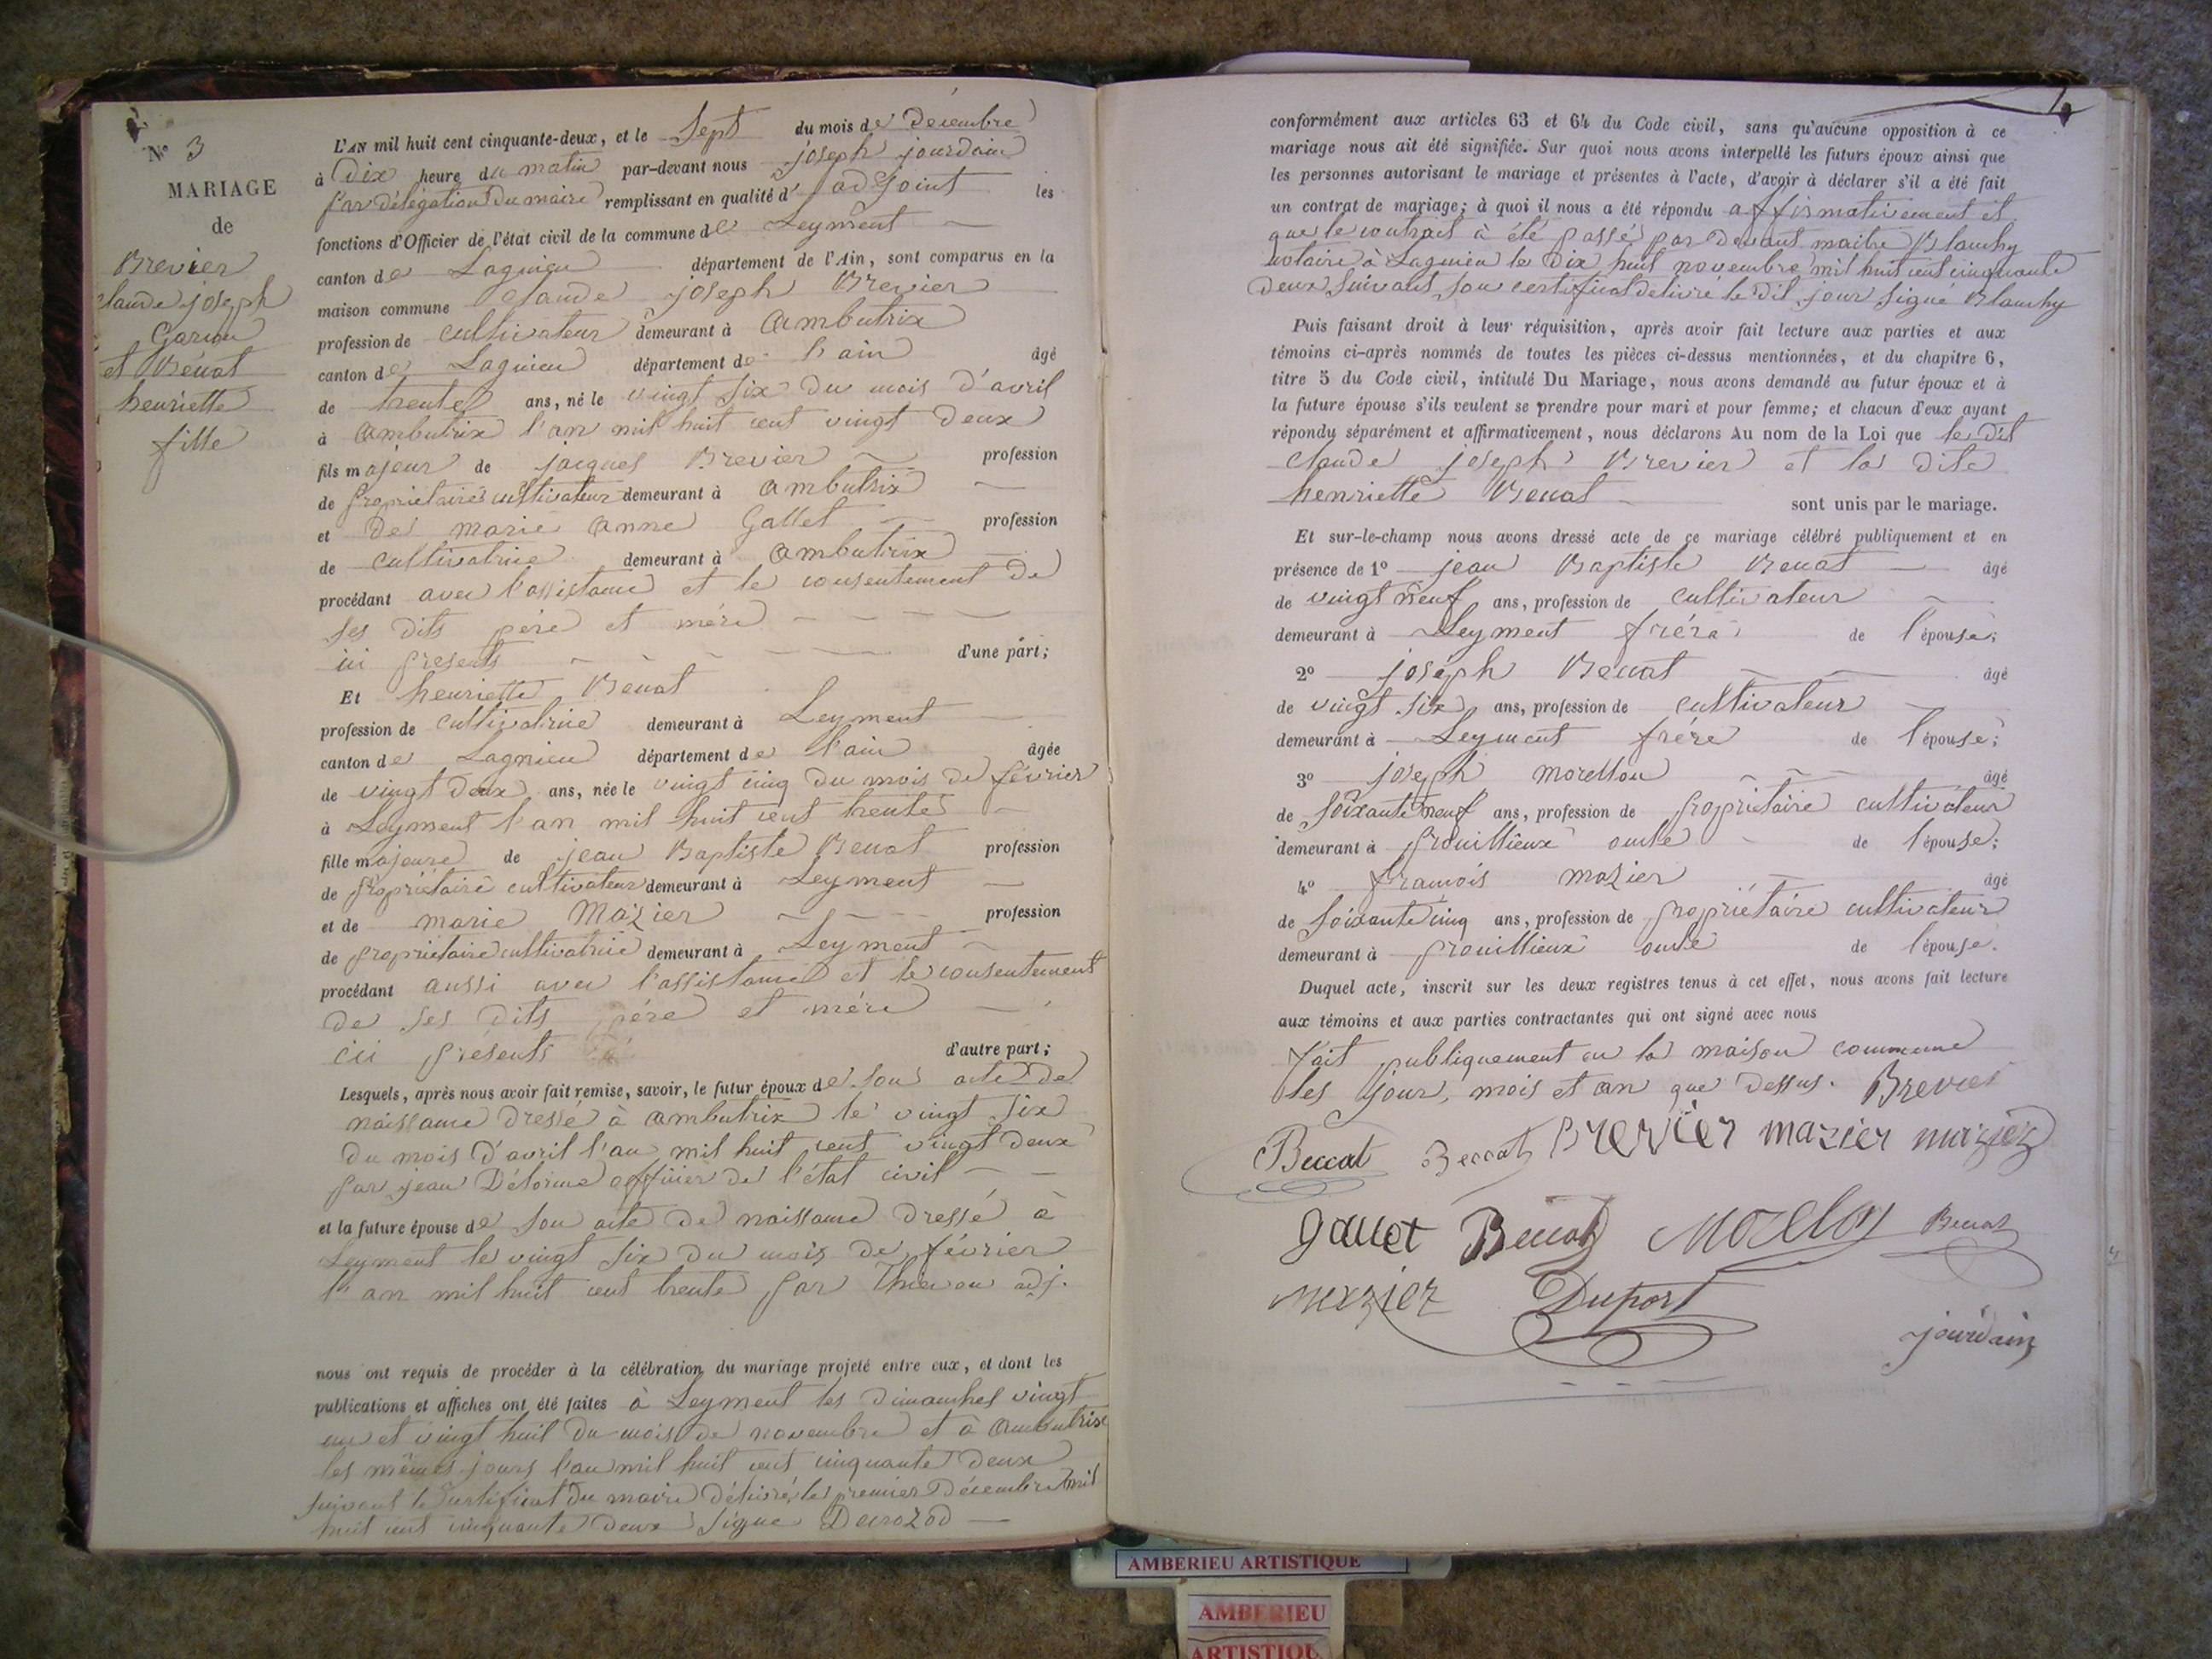 N° 3
MARIAGE
de
Brevier
claude joseph
Garçon
et Becat
henriette
fille
L'AN mil huit cent cinquante-deux, et le Sept du mois de Décembre
à Dix heure du matin par-devant nous joseph jourdain
par délégation Du maire remplissant en qualité d' adjoint les
fonctions d'Officier de l'état civil de la commune de Leyment
canton de Lagnieu département de l'Ain, sont comparus en la
maison commune Claude joseph Brevier
profession de cultivateur demeurant à Ambutrix
canton de Lagnieu département de l'ain âgé
de trente ans, né le vingt six du mois d'avril
à Ambutrix l'an mil huit cent vingt deux
fils majeur de jacques Brevier profession
de propriétaire cultivateur demeurant à Ambutrix
et de marie anne Gallet profession
de cultivatrice demeurant à Ambutrix
procédant avec l'assistance et le consentement de
ses dits père et mère
ici présents d'une part;
Et henriette Becat
profession de cultivatrice demeurant à Leyment
canton de Lagnieu département de l'ain âgée
de vingt deux ans, née le vingt cinq du mois de février
à Leyment l'an mil huit cent trente
fille majeure de jean Baptiste Becat profession
de propriétaire cultivateur demeurant à Leyment
et de marie Mazier profession
de propriétaire cultivatrice demeurant à Leyment
procédant aussi avec l'assistance et le consentement
de ses dits père et mère
ici présents d'autre part;
Lesquels, après nous avoir fait remise, savoir, le futur époux de son acte de
naissance dressé à ambutrix le vingt six
du mois d'avril l'an mil huit cent vingt deux
par jean Délorme officier de l'état civil
et la future épouse de son acte de naissance dressé à
Leyment le vingt six du mois de février
l'an mil huit cent trente par adj.
nous ont requis de procéder à la célébration du mariage projeté entre eux, et dont les
publications et affiches ont été faites à Leyment les dimanches vingt
un et vingt huit du mois de novembre et à Ambutrix
les mêmes jours l'an mil huit cent cinquante deux
suivant le certificat du maire délivré le premier décembre mil
huit cent cinquante deux signé
conformément aux articles 63 et 64 du Code civil, sans qu'aucune opposition à ce
mariage nous ait été signifiée. Sur quoi nous avons interpellé les futurs époux ainsi que
les personnes autorisant le mariage et présentes à l'acte, d'avoir à déclarer s'il a été fait
un contrat de mariage; à quoi il nous a été répondu affirmativement et
que le contrat à été passé par devant maitre Blanchy
notaire à Lagnieu le dix huit novembre mil huit cent cinquante
deux suivant son certificat délivré le dit jour signé Blanchy
Puis faisant droit à leur réquisition, après avoir fait lecture aux parties et aux
témoins ci-après nommés de toutes les pièces ci-dessus mentionnées, et du chapitre 6,
titre 5 du Code civil, intitulé Du Mariage, nous avons demandé au futur époux et à
la future épouse s'ils veulent se prendre pour mari et pour femme; et chacun d'eux ayant
répondu séparément et affirmativement, nous déclarons Au nom de la Loi que le dit
Claude joseph Brevier et la dite
henriette Becat sont unis par le mariage.
Et sur-le-champ nous avons dressé acte de ce mariage célébré publiquement et en
présence de 1° jean Baptiste Becat âgé
de vingt neuf ans, profession de cultivateur
demeurant à Leyment frère de l'épouse;
2° joseph Becat âgé
de vingt six ans, profession de cultivateur
demeurant à Leyment frère de l'épouse;
3° joseph morellon âgé
de soixante neuf ans, profession de propriétaire cultivateur
demeurant à prouillieux oncle de l'épouse;
4° francois mazier âgé
de soixante cinq ans, profession de propriétaire cultivateur
demeurant à prouillieux oncle de l'épouse.
Duquel acte, inscrit sur les deux registres tenus à cet effet, nous avons fait lecture
aux témoins et aux parties contractantes qui ont signé avec nous
fait publiquement en la maison commune
les jour, mois et an que dessus. Brevier
Beccat Beccat Brevier mazier mazier
gallet Beccat Beccat
mazier Duport
jourdain
AMBERIEU ARTISTIQUE
AMBERIEU
ARTISTIQU